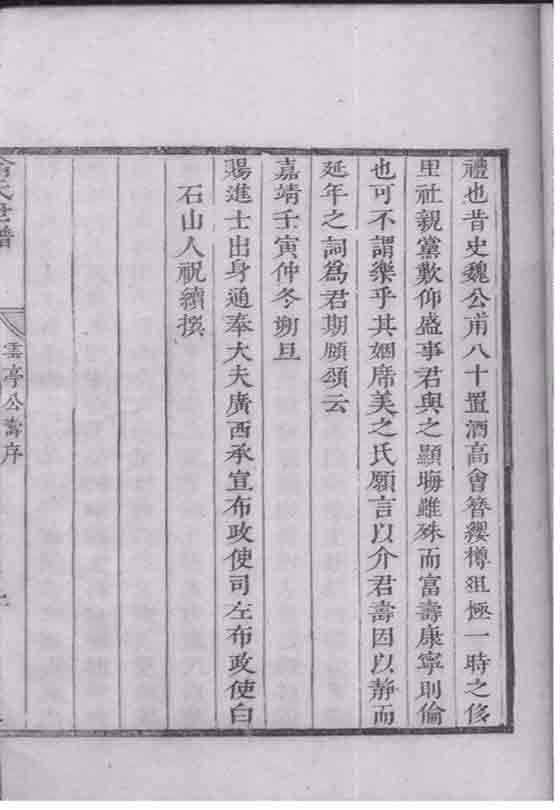 禮也昔史魏公甫八十置酒高會簪纓樽俎極一時之侈
里社親黨歎仰盛事君與之顯晦雖殊而富壽康寧則倫
也可不謂樂乎其姻席美之氏願言以介君壽因以静而
延年之詞爲君期頤頌云
嘉靖壬寅仲冬朔旦
賜進士出身通奉大夫廣西承宣布政使司左布政使白
石山人祝續撰
氏世譜
雲亭公壽序